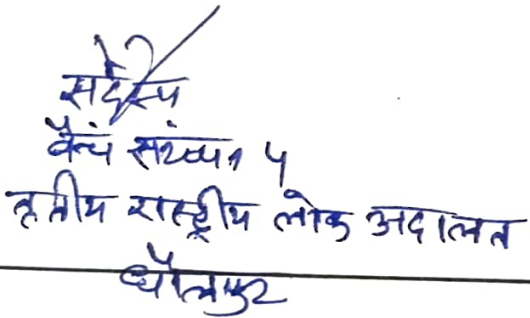 सदस्य
बैन्च संख्या 5
तृतीय राष्ट्रीय लोक अदालत
धौलपुर